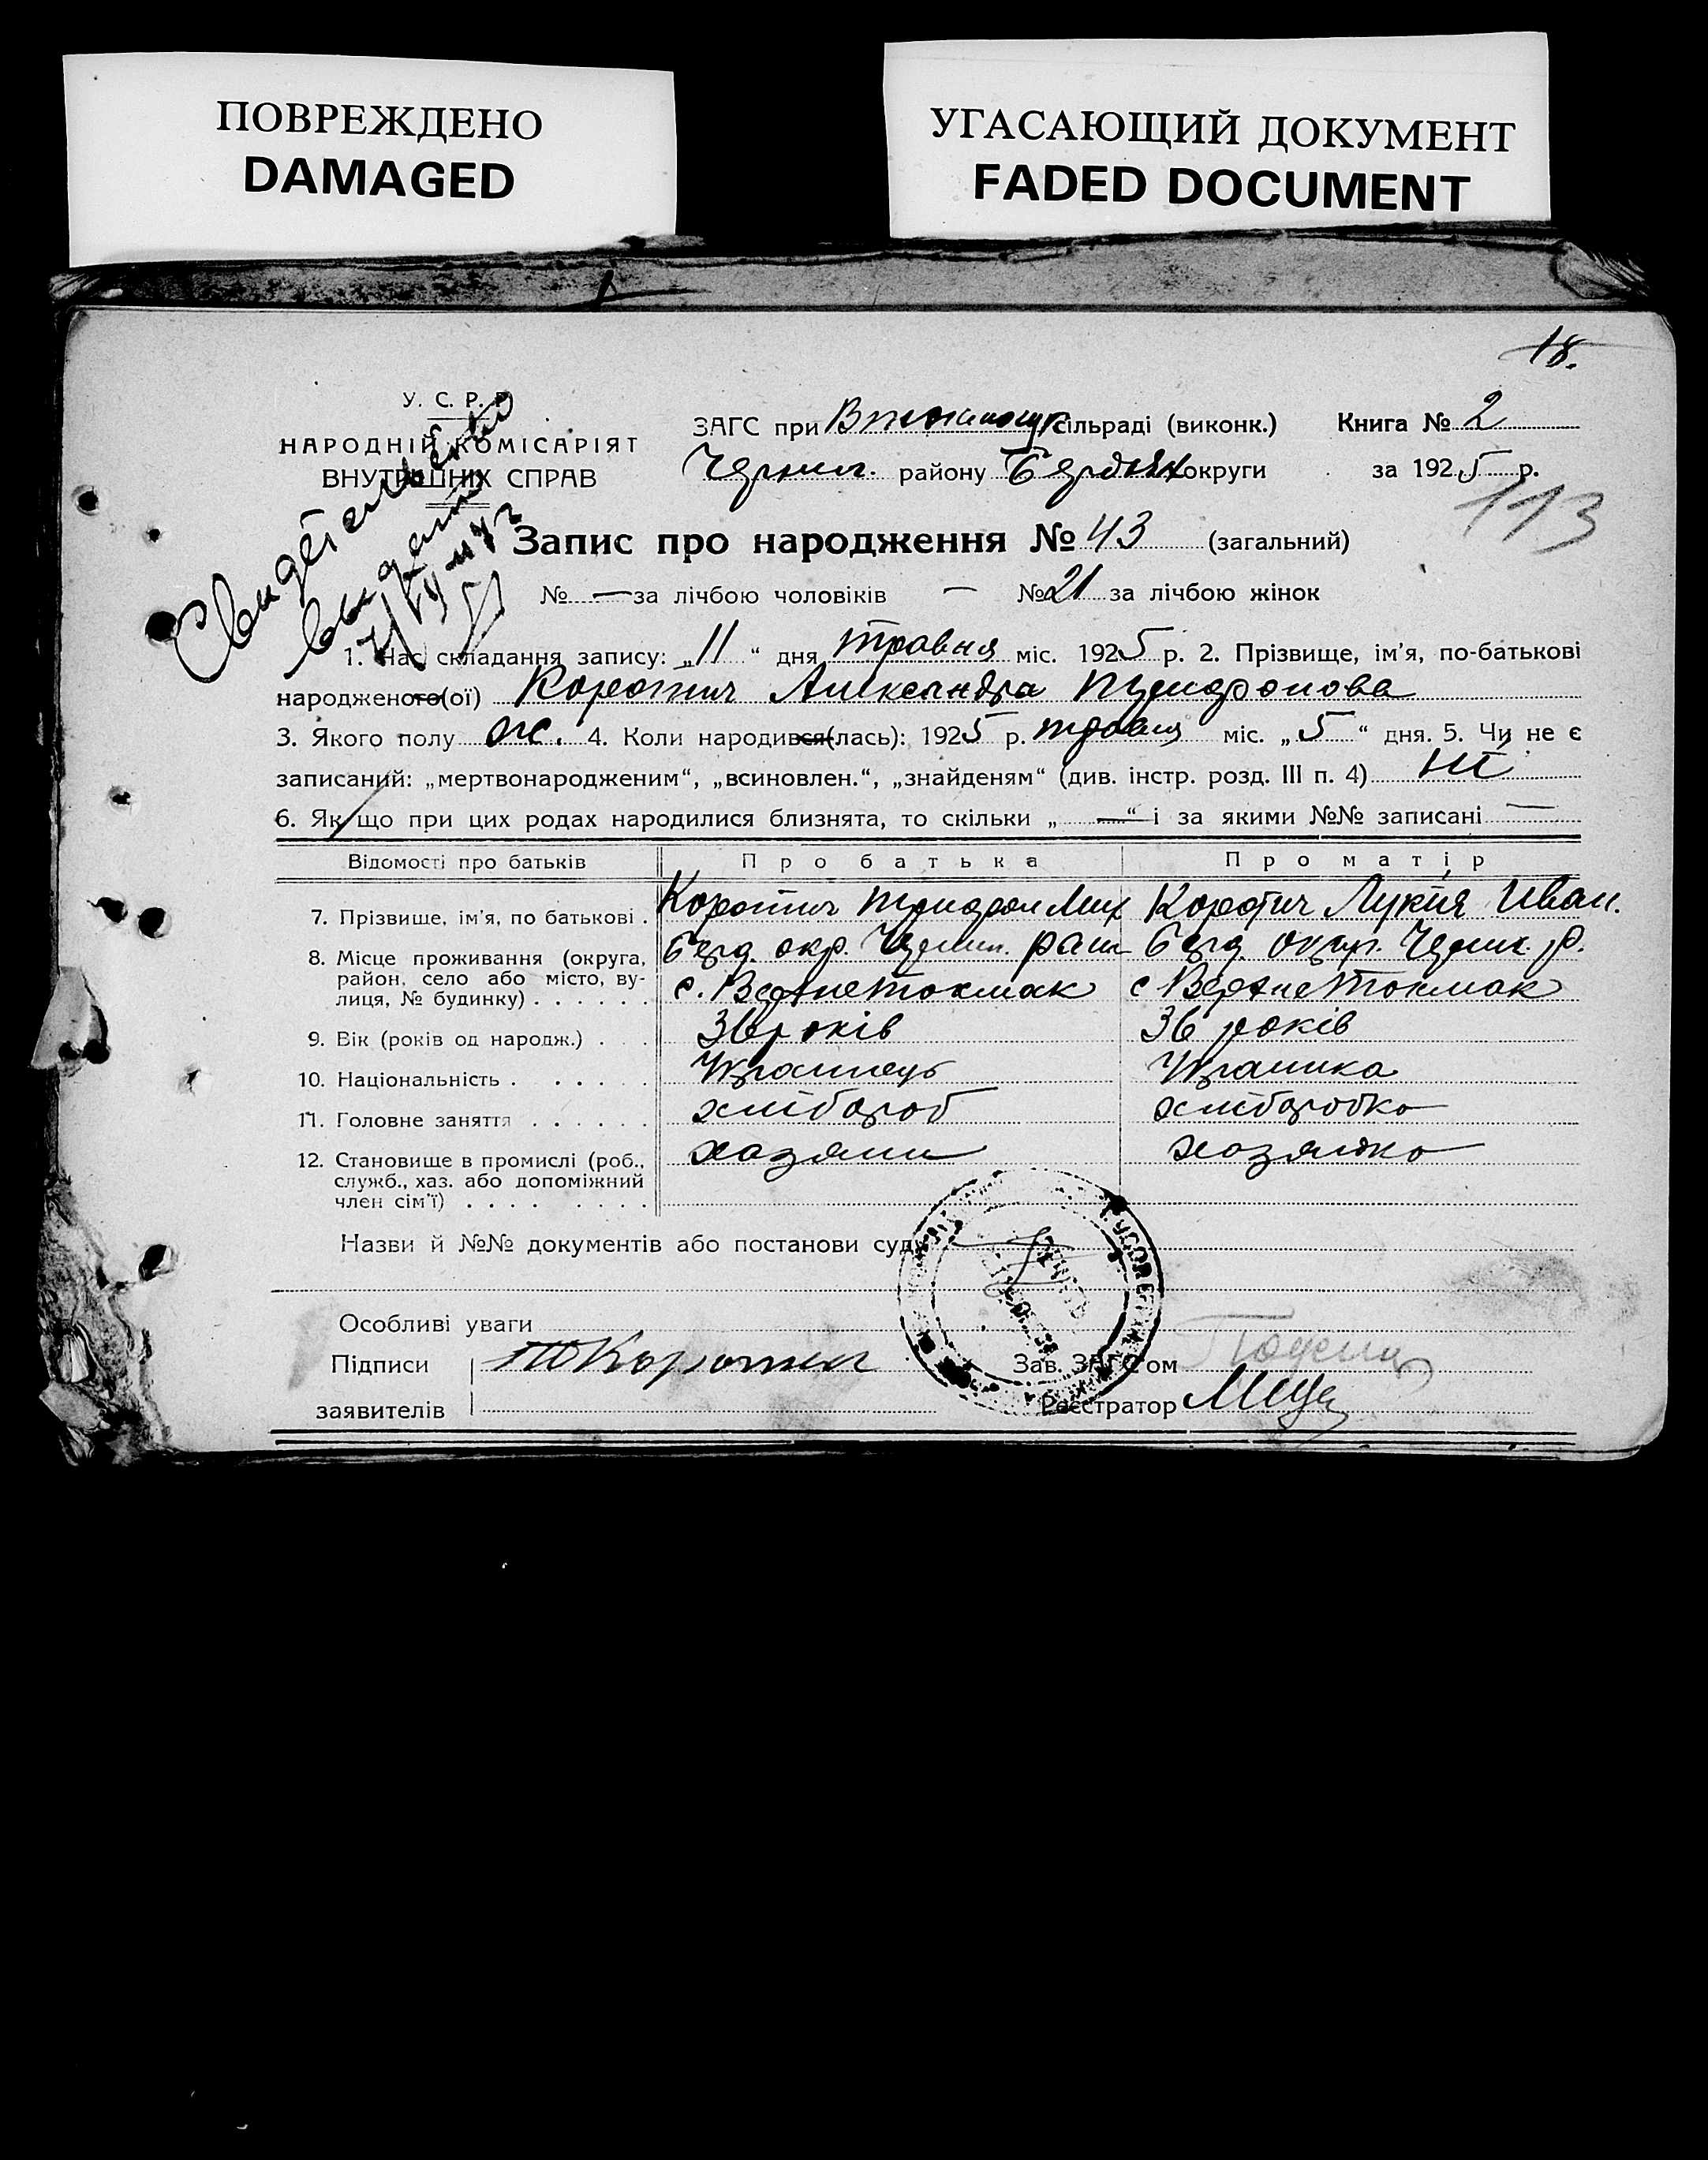 ПОВРЕЖДЕНО
DAMAGED
УГАСАЮЩИЙ ДОКУМЕНТ
FADED DOCUMENT
18.
У. С. Р. Р.
НАРОДНІЙ КОМІСАРІЯТ
ВНУТРІШНІХ СПРАВ
Свидетельство
выдано
ЗАГС при сільраді (виконк.) Книга № 2
Черниг. району Бердян округи за 1925 р.
113
Запис про народження № 43 (загальний)
№ — за лічбою чоловіків — № 21 за лічбою жінок
1. Час складання запису: „11“ дня травня міс. 1925 р. 2. Прізвище, ім'я, по-батькові
народженого(ої) Коротич Александра
3. Якого полу ж. 4. Коли народився(лась): 1925 р. травня міс. „5“ дня. 5. Чи не є
записаний: „мертвонародженим“, „всиновлен.“, „знайденям“ (див. інстр. розд. III п. 4) ні
6. Як що при цих родах народилися близнята, то скільки „—“ і за якими №№ записані —
Відомості про батьків Про батька Про матір
7. Прізвище, ім'я, по батькові . Коротич Мих Коротич Лукия Иван.
8. Місце проживання (округа, Берд. окр. Черниг. раин Берд. окр. Черниг. р.
район, село або місто, ву-
лиця, № будинку) . . . . . . с. Верхнетокмак с Верхнетокмак
9. Вік (років од народж.) . . . 36 років 36 років
10. Національність . . . . . Украінець Украинка
11. Головне заняття . . . . . . хлібороб хліборобка
12. Становище в промислі (роб., хазяин хазяйка
служб., хаз. або допоміжний
член сім'ї) . . . . . . . .
Назви й №№ документів або постанови суду
Особливі уваги
Підписи Коротич Зав. ЗАГС'ом
заявителів Реєстратор